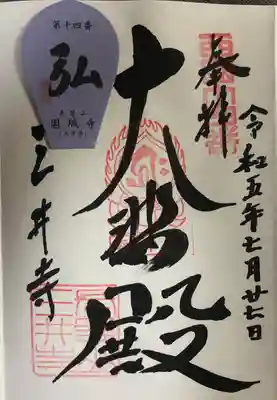 奉拜
令和五年七月廿七日
大悲殿
三井寺
第十四番
弘
長等山
園城寺
(三井寺)